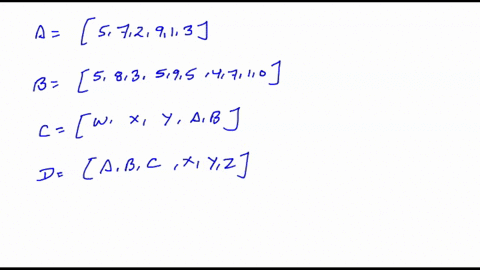 A = [5, 7, 2, 9, 1, 3]
B = [5, 8, 3, 5, 9, 5, 4, 7, 1, 0]
C = [W, X, Y, A, B]
D = [A, B, C, X, Y, Z]